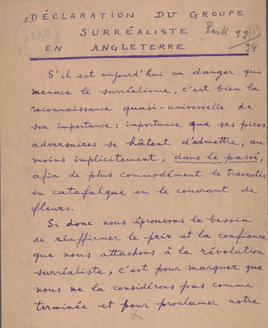 DÉCLARATION DU GROUPE
SURRÉALISTE
EN ANGLETERRE
12
34
S'il est aujourd'hui un danger qui
menace le surréalisme, c'est bien la
reconnaissance quasi-universelle de
son importance : importance que ses pires
adversaires se hâtent d'admettre, au
moins implicitement, dans le passé,
afin de plus commodément le travestir
en catafalque en le couvrant de
fleurs.
Si donc nous éprouvons le besoin
de réaffirmer le prix et la confiance
que nous attachons à la révolution
surréaliste, c'est pour marquer que
nous ne la considérons pas comme
terminée et pour proclamer notre